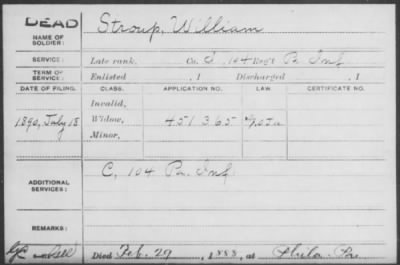 DEAD
NAME OF SOLDIER: Stroup, William
SERVICE: Late rank, Co. 104 Reg't Pa Inf
TERM OF SERVICE: Enlisted , 1 Discharged , 1
DATE OF FILING. CLASS. APPLICATION NO. LAW. CERTIFICATE NO.
Invalid,
1890, July 18 Widow, 451365
Minor,
ADDITIONAL SERVICES: C, 104 Pa. Inf
REMARKS:
Died Feb. 29, 1888, at Phila. Pa.